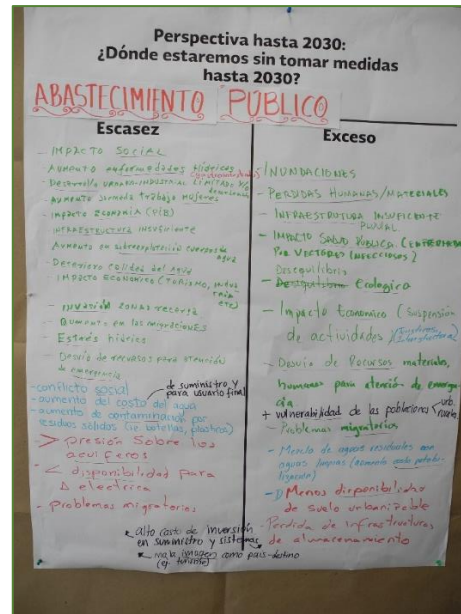 Perspectiva hasta 2030:
¿Dónde estaremos sin tomar medidas
hasta 2030?
ABASTECIMIENTO PÚBLICO
Escasez
- IMPACTO SOCIAL
- AUMENTO enfermedades hídricas
- Desarrollo URBANO-INDUSTRIAL LIMITADO Y/O
- AUMENTO jornada trabajo mujeres
- IMPACTO ECONOMÍA (PIB)
- INFRAESTRUCTURA INSUFICIENTE
- Aumento en sobreexplotación cuerpos de
agua
- Deterioro calidad del agua
- IMPACTO ECONÓMICO (TURISMO, INDUS
TRIA
etc)
- INVASIÓN ZONAS RECARGA
- Aumento en las migraciones
- Estrés hídrico
- Desvío de recursos para atención
de emergencia
- conflicto social
- aumento del costo del agua
de suministro y
para usuario final
- aumento de contaminación por
residuos sólidos (ie botellas, plástico)
- > presión sobre los
acuíferos
- < disponibilidad para
Δ electrica
- Problemas migratorios
Exceso
- INUNDACIONES
- PERDIDAS HUMANAS/MATERIALES
- INFRAESTRUTURA INSUFICIENTE
PLUVIAL
- IMPACTO SALUD PÚBLICA (ENFERMEDADES
POR VECTORES INFECCIOSOS)
Desequilibrio
- Desequilibrio Ecologico
- Impacto Economico (Suspensión
de actividades)
- Desvio de Recursos materiales,
humanos para atención de emergen
cia
+ vulnerabilidad de las poblaciones
urb.
rurales
- Problemas migratorios
- Mezcla de aguas residuales con
aguas limpias
- Menos disponibilidad
de suelo urbanizable
- Perdida de infrastructuras
de almacenamiento
alto costo de inversión
en suministro y sistemas
mala imagen como país-destino
(ej turismo)